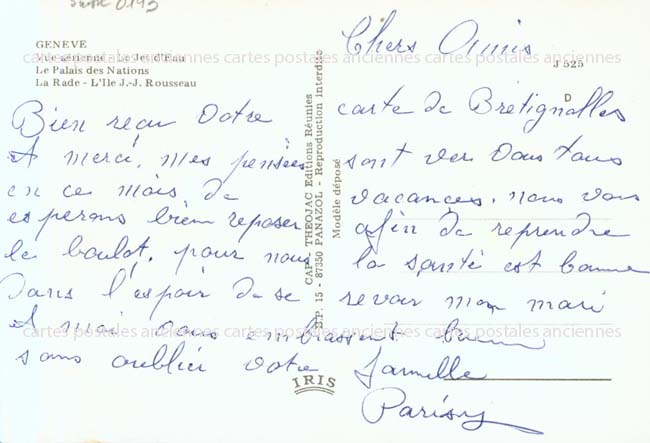 Série 0193
GENEVE
Vue aérienne - Le Jet d'Eau
Le Palais des Nations
La Rade - L'Ile J.-J. Rousseau
J 525
D
CAP - THEOJAC Editions Réunies
B.P. 15 - 87350 PANAZOL - Reproduction Interdite
Modèle déposé
IRIS
Chers Amis
Bien reçu votre carte de Brétignolles
et merci, mes pensées sont vers vous tous
en ce mois de vacances. nous vous
esperons bien reposer afin de reprendre
le boulot, pour nous la santé est bonne
dans l'espoir de se revoir mon mari
et moi vous embrassent bien
sans oublier votre famille
Parisy
cartes postales anciennes cartes postales anciennes cartes postales anciennes
cartes postales anciennes cartes postales anciennes cartes postales anciennes